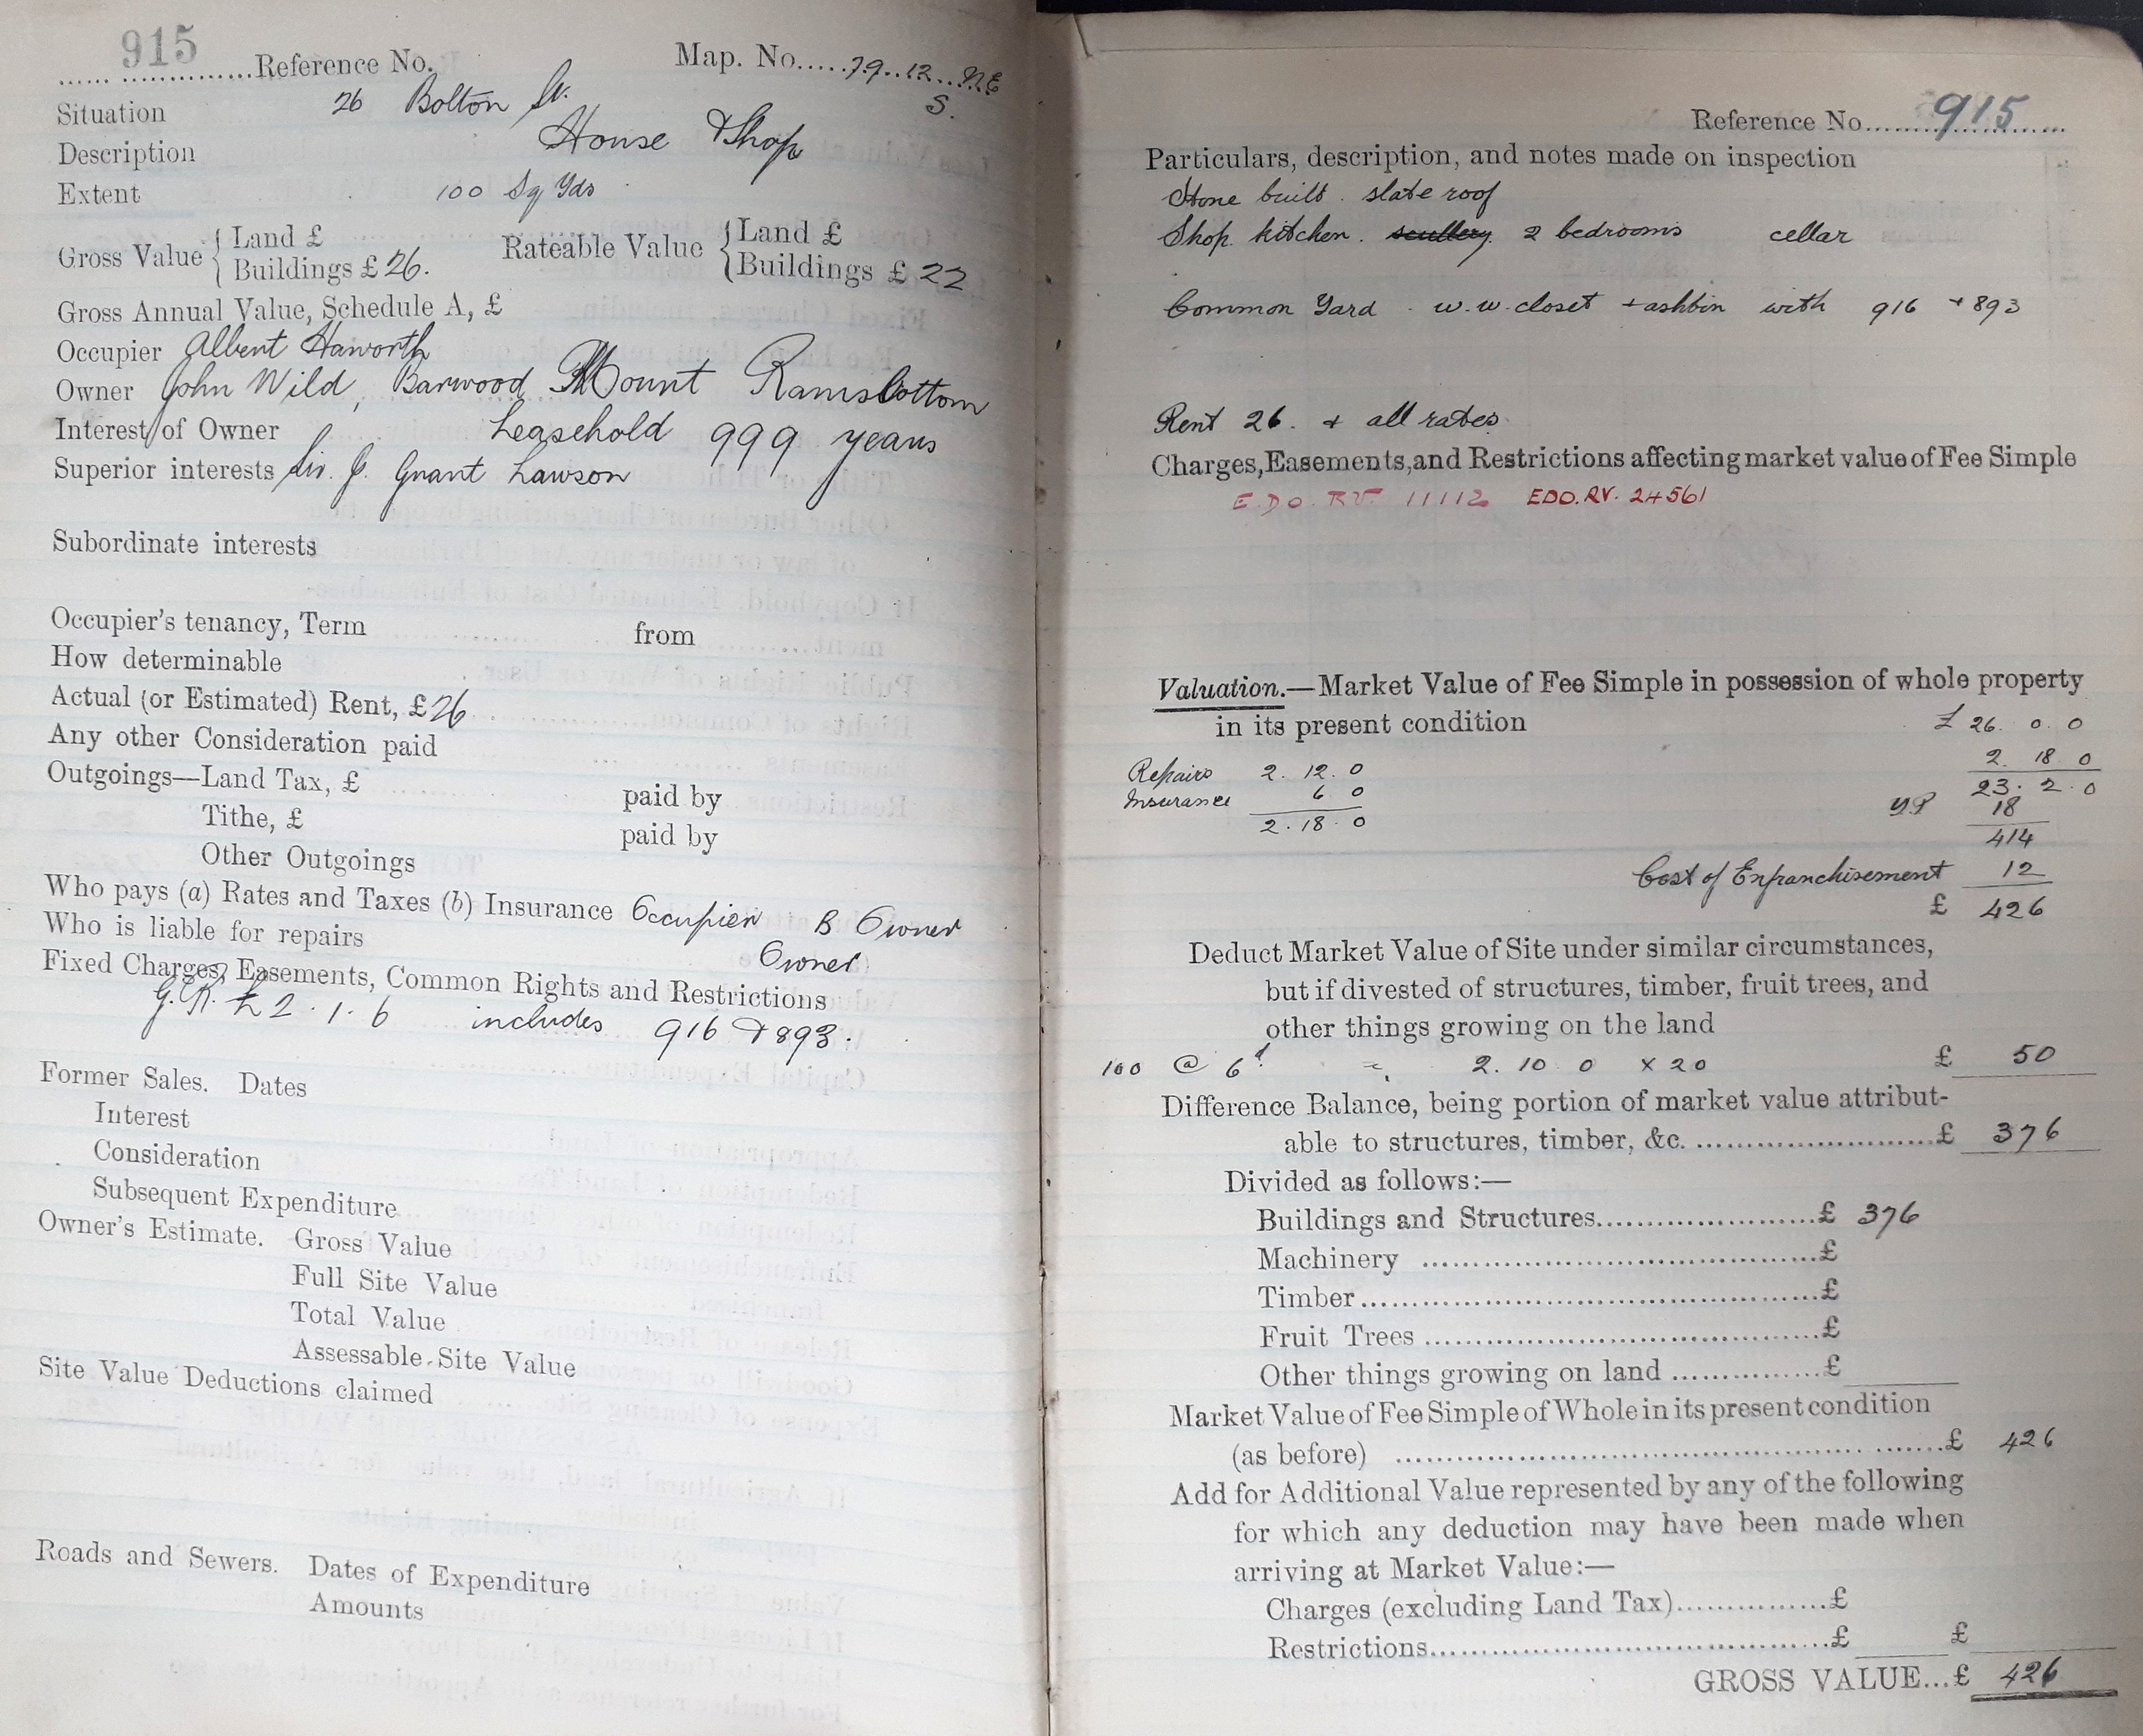 915
Reference No. Map. No. 79. 12. NE
S.
Situation 26 Bolton St.
Description House & Shop
Extent 100 Sq Yds
Gross Value { Land £ Rateable Value { Land £
Buildings £ 26. Buildings £ 22
Gross Annual Value, Schedule A, £
Occupier Albert Haworth
Owner John Wild, Barwood Mount Ramsbottom
Interest of Owner Leasehold 999 years
Superior interests Sir. J. Grant Lawson
Subordinate interests
Occupier's tenancy, Term from
How determinable
Actual (or Estimated) Rent, £ 26
Any other Consideration paid
Outgoings—Land Tax, £ paid by
Tithe, £ paid by
Other Outgoings
Who pays (a) Rates and Taxes (b) Insurance Occupier B Owner
Who is liable for repairs Owner
Fixed Charges, Easements, Common Rights and Restrictions
G.R. £2.1.6 includes 916 & 893.
Former Sales. Dates
Interest
Consideration
Subsequent Expenditure
Owner's Estimate. Gross Value
Full Site Value
Total Value
Assessable Site Value
Site Value Deductions claimed
Roads and Sewers. Dates of Expenditure
Amounts
Reference No. 915
Particulars, description, and notes made on inspection
Stone built. slate roof
Shop. kitchen. scullery. 2 bedrooms cellar
Common Yard. w.w. closet + ashbin with 916 + 893
Rent 26. + all rates.
Charges, Easements, and Restrictions affecting market value of Fee Simple
E.D.O. R.V. 11112 EDO.RV. 24561
Valuation.—Market Value of Fee Simple in possession of whole property
in its present condition £ 26. 0. 0
Repairs 2. 12. 0 2. 18 0
Insurance 6 0 23. 2. 0
Y.P 18
2. 18. 0 414
Cost of Enfranchisement 12
£ 426
Deduct Market Value of Site under similar circumstances,
but if divested of structures, timber, fruit trees, and
other things growing on the land
100 @ 6d = 2. 10 0 x 20 £ 50
Difference Balance, being portion of market value attribut-
able to structures, timber, &c. £ 376
Divided as follows:—
Buildings and Structures £ 376
Machinery £
Timber £
Fruit Trees £
Other things growing on land £
Market Value of Fee Simple of Whole in its present condition
(as before) £ 426
Add for Additional Value represented by any of the following
for which any deduction may have been made when
arriving at Market Value:—
Charges (excluding Land Tax) £
Restrictions £ £
GROSS VALUE...£ 426